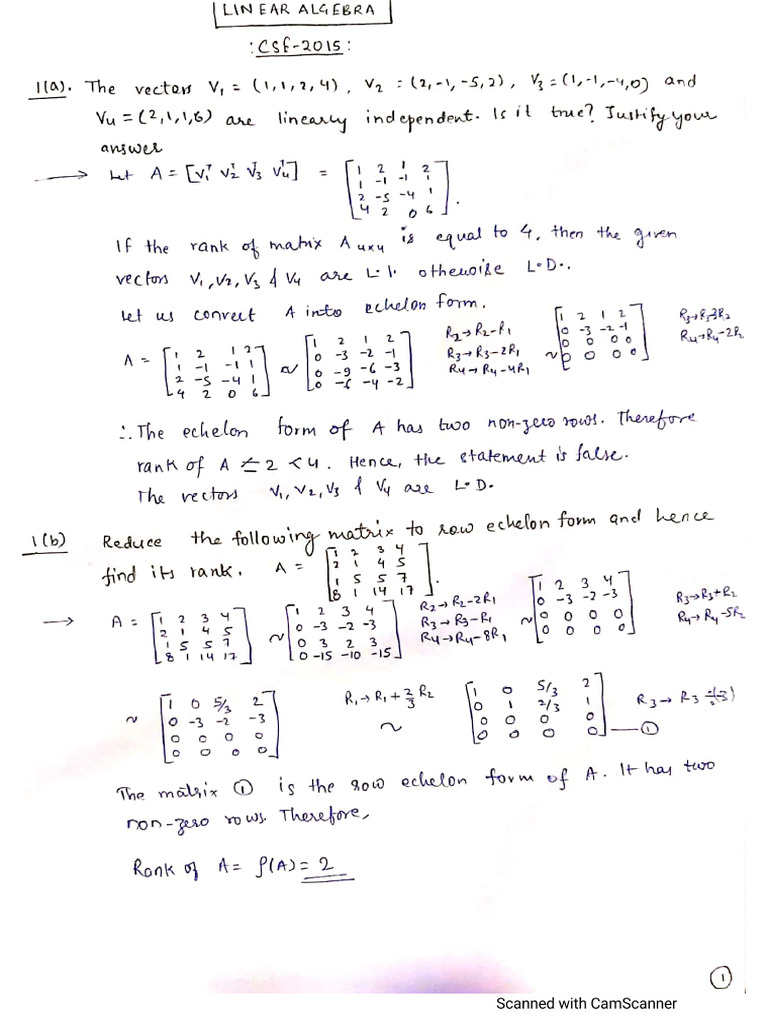 LINEAR ALGEBRA
:CSE-2015:
1(a). The vectors V1 = (1,1,2,4), V2 = (2,-1,-5,2), V3 = (1,-1,-4,0) and
V4 = (2,1,1,6) are linearly independent. Is it true? Justify your
answer
→ Let A = [V1ᵀ V2ᵀ V3ᵀ V4ᵀ] = [1 2 1 2; 1 -1 -1 1; 2 -5 -4 1; 4 2 0 6].
If the rank of matrix A4x4 is equal to 4, then the given
vectors V1, V2, V3 & V4 are L.I. otherwise L.D..
Let us convert A into echelon form.
A = [1 2 1 2; 1 -1 -1 1; 2 -5 -4 1; 4 2 0 6] ~ [1 2 1 2; 0 -3 -2 -1; 0 -9 -6 -3; 0 -6 -4 -2] R2→R2-R1 R3→R3-2R1 R4→R4-4R1 ~ [1 2 1 2; 0 -3 -2 -1; 0 0 0 0; 0 0 0 0] R3→R3-3R2 R4→R4-2R2
∴ The echelon form of A has two non-zero rows. Therefore
rank of A ≤ 2 < 4. Hence, the statement is false.
The vectors V1, V2, V3 & V4 are L.D.
1(b) Reduce the following matrix to row echelon form and hence
find its rank. A = [1 2 3 4; 2 1 4 5; 1 5 5 7; 8 1 14 17].
→ A = [1 2 3 4; 2 1 4 5; 1 5 5 7; 8 1 14 17] ~ [1 2 3 4; 0 -3 -2 -3; 0 3 2 3; 0 -15 -10 -15] R2→R2-2R1 R3→R3-R1 R4→R4-8R1 ~ [1 2 3 4; 0 -3 -2 -3; 0 0 0 0; 0 0 0 0] R3→R3+R2 R4→R4-5R2
~ [1 0 5/3 2; 0 -3 -2 -3; 0 0 0 0; 0 0 0 0] R1→R1+2/3 R2 ~ [1 0 5/3 2; 0 1 2/3 1; 0 0 0 0; 0 0 0 0] —① R3→R3 (-3)
The matrix ① is the row echelon form of A. It has two
non-zero rows. Therefore,
Rank of A = ρ(A) = 2
①
Scanned with CamScanner